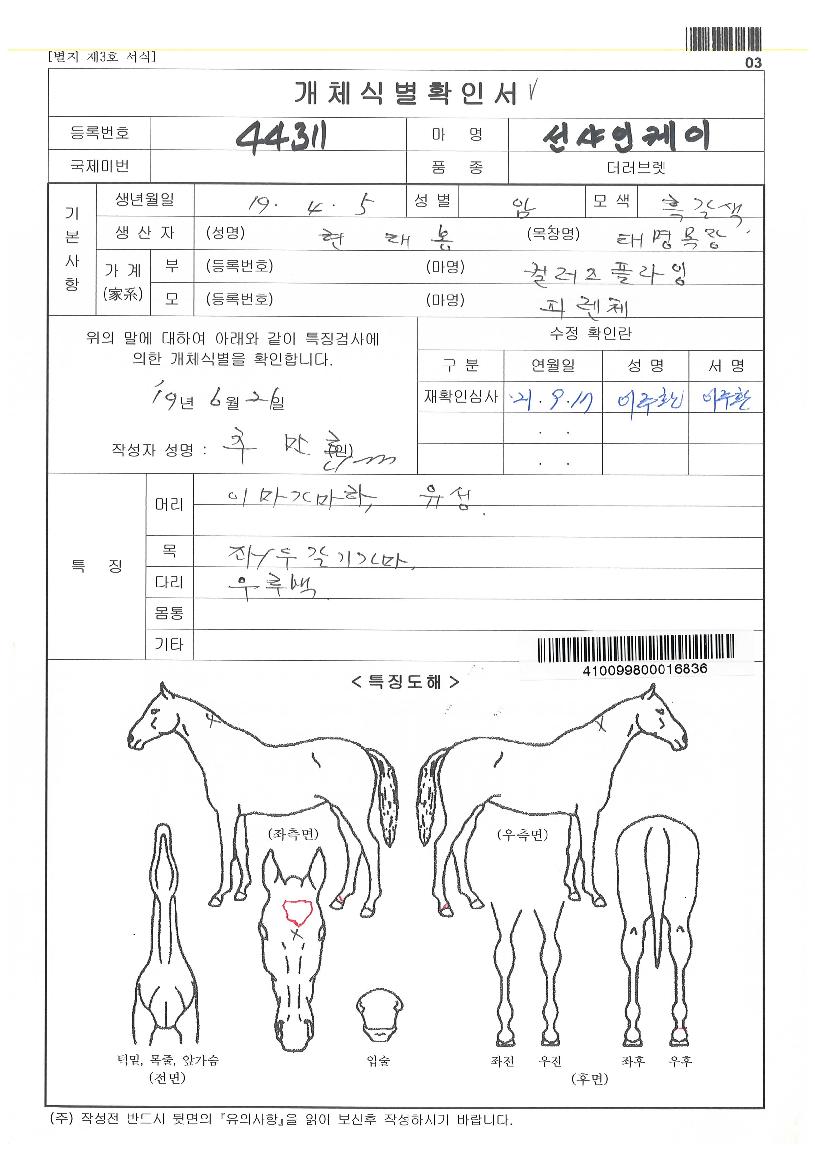 [별지 제3호 서식]
03
개체식별확인서
등록번호 44311 마 명 선샤인케이
국제미번 품 종 더러브렛
기본사항
생년월일 19. 4. 5 성 별 암 모 색 흑갈색
생 산 자 (성명) 현 태 봉 (목장명) 태명목장
가 계 (家系)
부 (등록번호) (마명) 컬러즈플라잉
모 (등록번호) (마명) 피렌체
위의 말에 대하여 아래와 같이 특징검사에
의한 개체식별을 확인합니다.
'19년 6월 26일
작성자 성명 : (인)
수정 확인란
구 분 연월일 성 명 서 명
재확인심사 '21. 9. 17 이주환 이주환
. .
. .
특 징
머리 이마가마하, 유성.
목 좌/우 갈기가마.
다리 우후백
몸통
기타
410099800016836
< 특징도해 >
(좌측면) (우측면)
턱밑, 목줄, 앞가슴
(전면)
입술
좌진 우진 좌후 우후
(후면)
(주) 작성전 반드시 뒷면의 『유의사항』을 읽어 보신후 작성하시기 바랍니다.